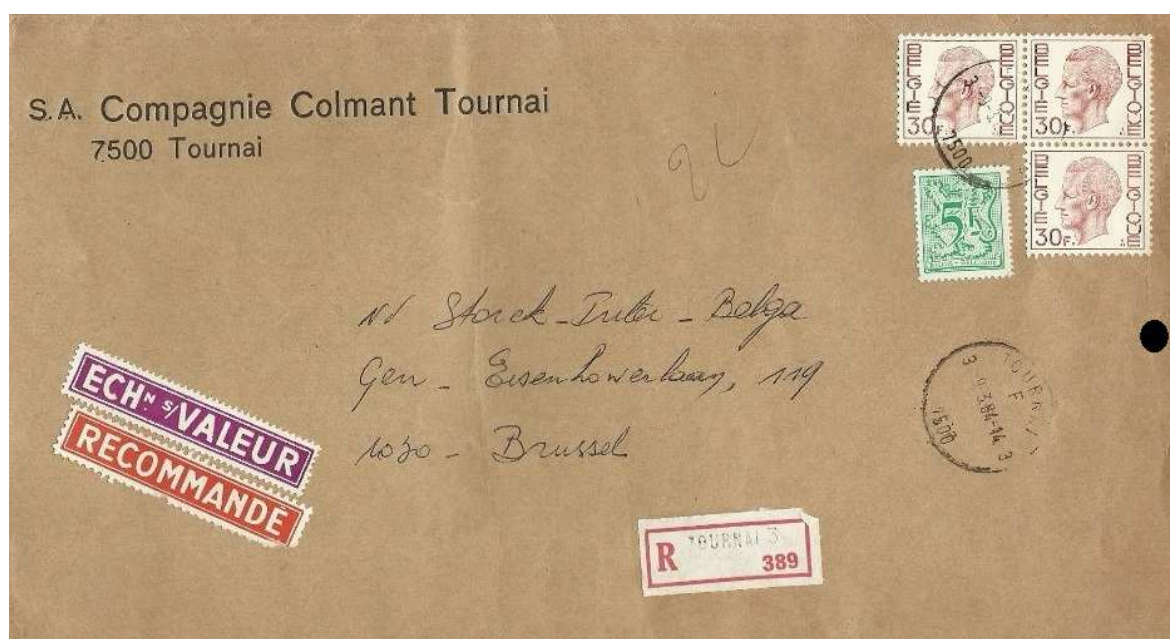 S.A. Compagnie Colmant Tournai
7500 Tournai
BELGIE BELGIQUE
30F.
BELGIE BELGIQUE
30F.
BELGIE BELGIQUE
30F.
5F
7500
NV Storck-Inter-Belga
Gen- Eisenhowerlaan, 119
1030 - Brussel
ECHN S/VALEUR
RECOMMANDE
TOURNAI
F
3 3
-3.84-14
7500
R TOURNAI 3
389